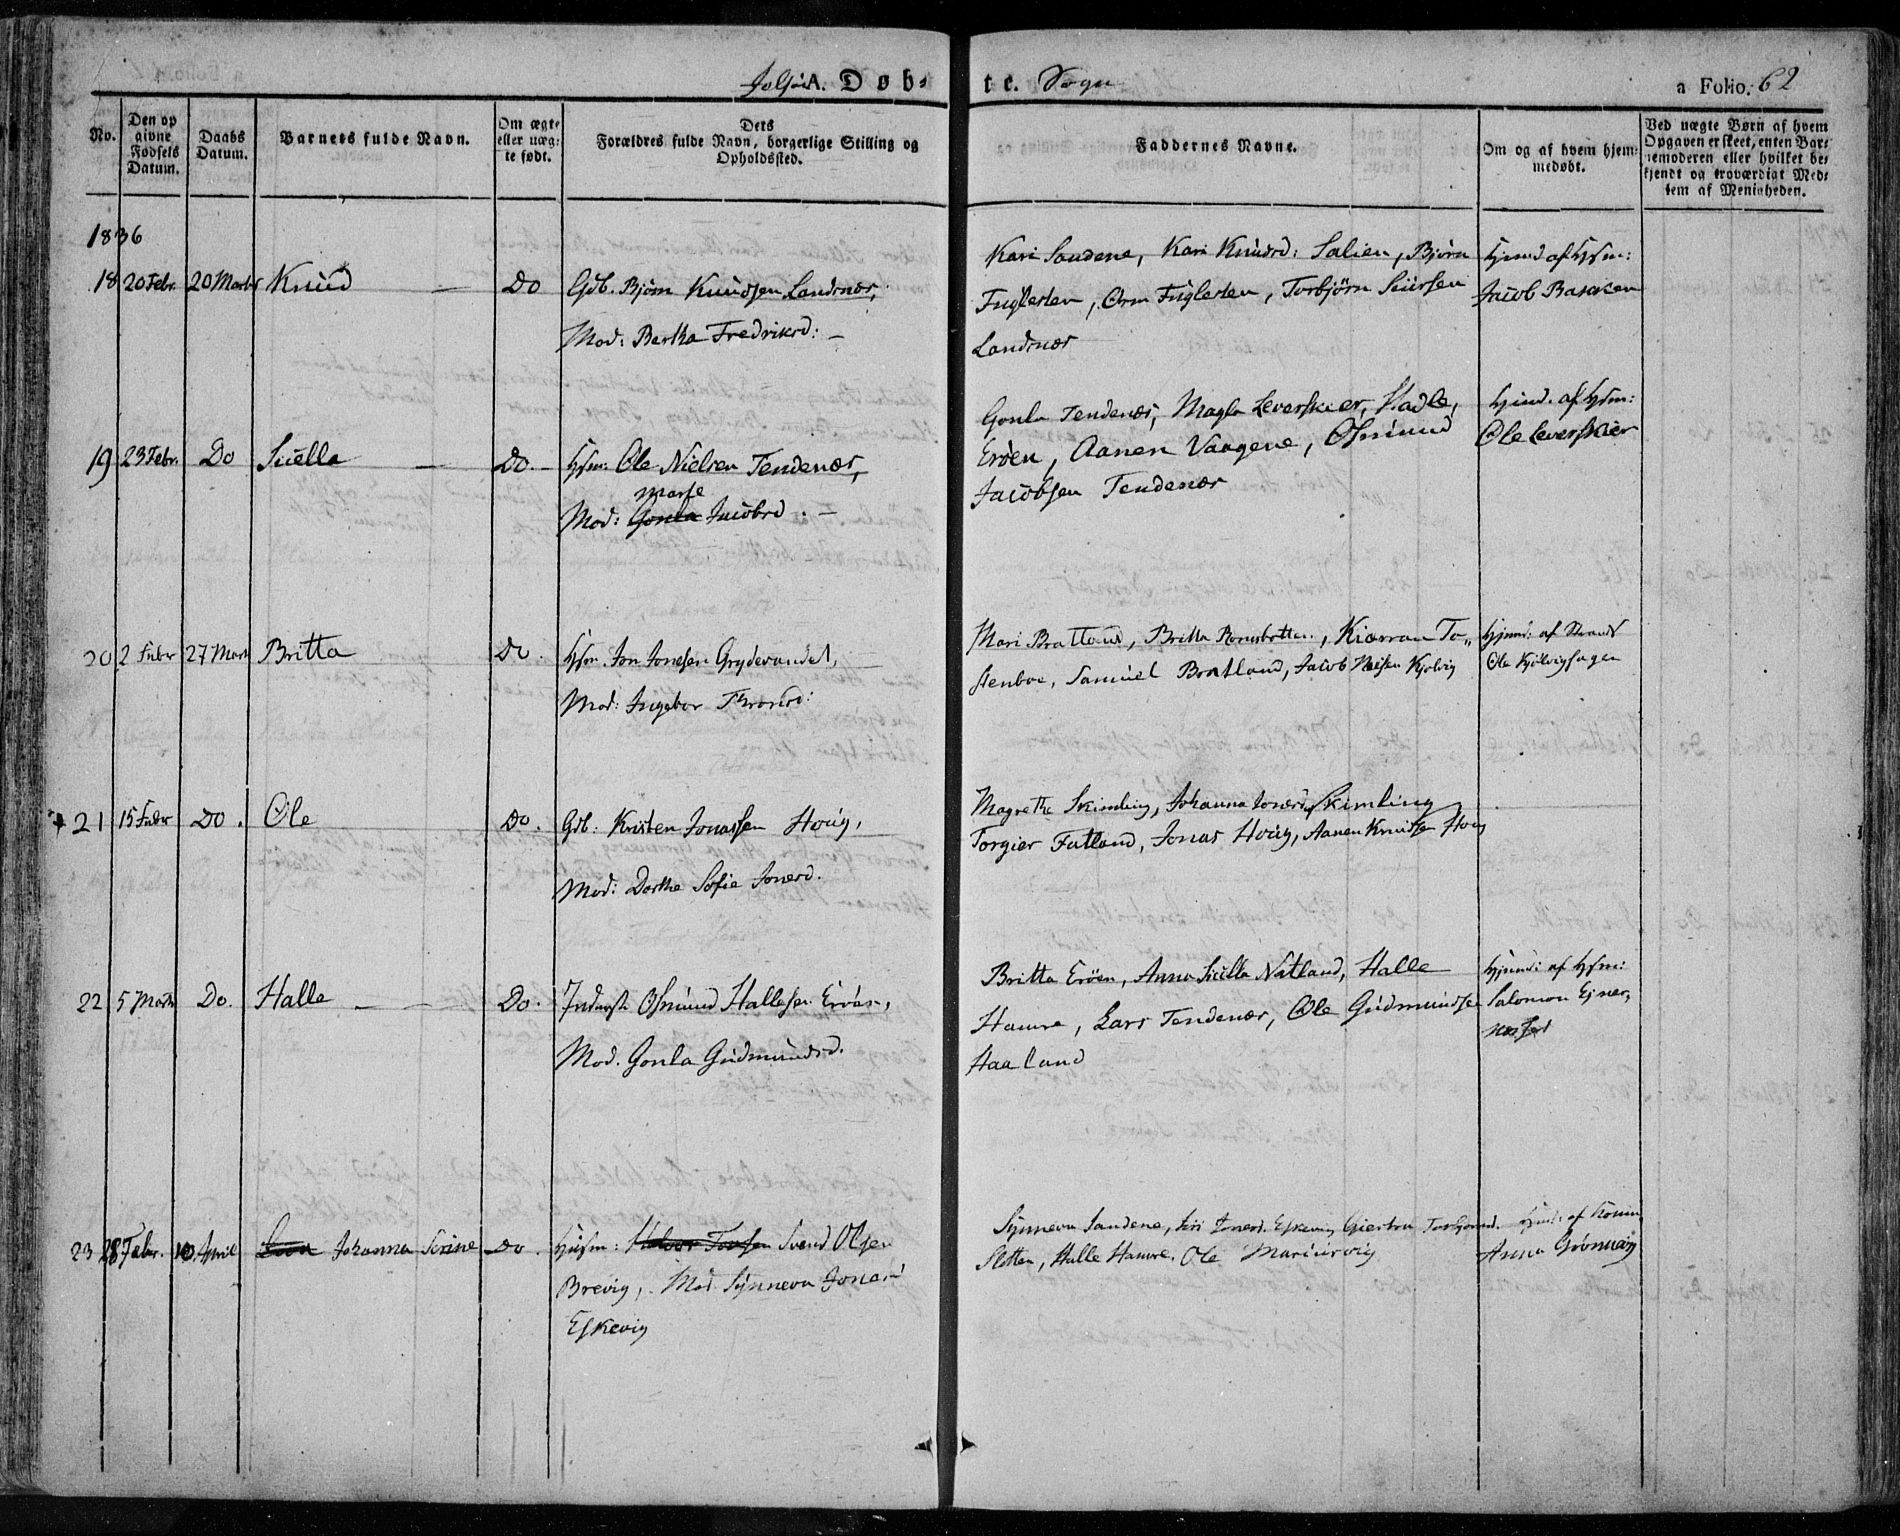 A. Døb-
te. Sogn
a Folio. 62
No.
Den op
givne
Fødsels
Datum.
Daabs
Datum.
Barnets fulde Navn.
Om ægte
eller uæg-
te født.
Dets
Forældres fulde Navn, borgerlige Stilling og
Opholdssted.
Faddernes Navne.
Om og af hvem hjem-
medøbt.
Ved uægte Børn af hvem
Opgaven er skeet, enten Bar-
nemoderen eller hvilket be-
kjendt og troværdigt Med-
lem af Menigheden.
1836
18 20 Febr. 20 Marts Knud — Do Gdb. Bjørn Knudsen Landsnæs,
Mod: Bertha Fredriksd: —
Kari Sandene, Kari Knudsd: Salien, Bjørn
Fuglesten, Orm Fuglesten, Torbjörn Siursen
Landsnæs
Hjmd af Hsm:
Jacob Basaken
19 23 Febr. Do Siella — Do — Hsm: Ole Nielsen Tendenæs,
Marse
Mod: Gonla Jacobsd. —
Gonla Tendenæs, Magla Leverskier, Hadle
Erøen, Aanen Vaagene, Osmund
Jacobsen Tendenæs
Hjmd. af Hsm:
Ole Leverskier
20 2 Febr 27 Marts Britta Do. Hsm. Jon Jonesen Grydevandet,
Mod: Ingebor Thronsd:
Mari Bratland, Britta, Kiærran To-
stenboe, Samuel Bratland, Jacob Kjølvig
Hjmd: af
Ole Kjölvighagen
21 15 Febr Do. Ole Do. Gdb: Kristen Jonassen Houg,
Mod: Dorthe Sofie Jonesd.
Magrethe Skimling, Johanna Jonesd. Skimling
Torgier Fatland, Jonas Houg, Aanen Knudsen Houg
22 5 Marts Do. Halle — Do. Inderst Osmund Hallesen Erøen,
Mod. Gonla Gudmundsd.
Britta Erøen, Anna Siella Natland, Halle
Hamre, Lars Tendenæs, Ole Gudmundsen
Haaland
Hjmd: af Hsm:
Salomon Ejner,
23 28 Febr. 10 April Johanna Serine Do. Huusm: Halvor Svend Olsen
Brevig, Mod. Synneva Jonasd
Eskevig
Synneva Sandene, Siri Jonesd. Eskevig, Giertru
Sletten, Halle Hamre, Ole
Hjmd: af Konen
Anna Grönnevig